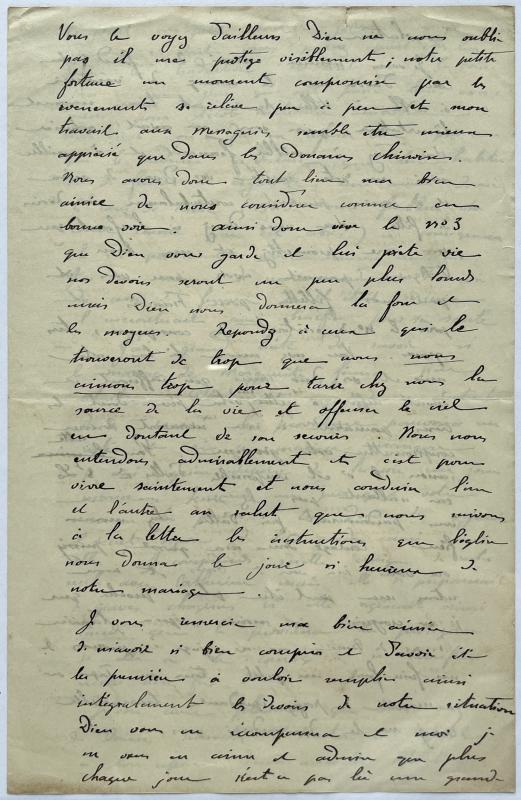 Vous le voyez d'ailleurs Dieu ne nous oublie
pas il me protège visiblement ; notre petite
fortune un moment compromise par les
évènements se relève peu à peu et mon
travail aux Messageries semble être mieux
apprécié que dans les Douanes chinoises.
Nous avons donc tout lieu ma bien
aimée de nous considérer comme en
bonne voie. ainsi donc vive le no 3
que Dieu vous garde et lui prête vie
nos devoirs seront un peu plus lourds
mais Dieu nous donnera la force et
les moyens. Répondez à ceux qui le
trouveront de trop que nous nous
aimons trop pour tarir chez nous la
source de la vie et offenser le ciel
en doutant de son secours. Nous nous
entendons admirablement et c'est pour
vivre saintement et nous conduire l'un
et l'autre au salut que nous suivons
à la lettre les instructions que l'église
nous donna le jour si heureux de
notre mariage.
Je vous remercie ma bien aimée
de m'avoir si bien compris et d'avoir été
la première à vouloir remplir ainsi
intégralement les devoirs de notre situation
Dieu vous en récompensera et moi je
vous en aime et admire que plus
chaque jour n'est ce pas là une grande